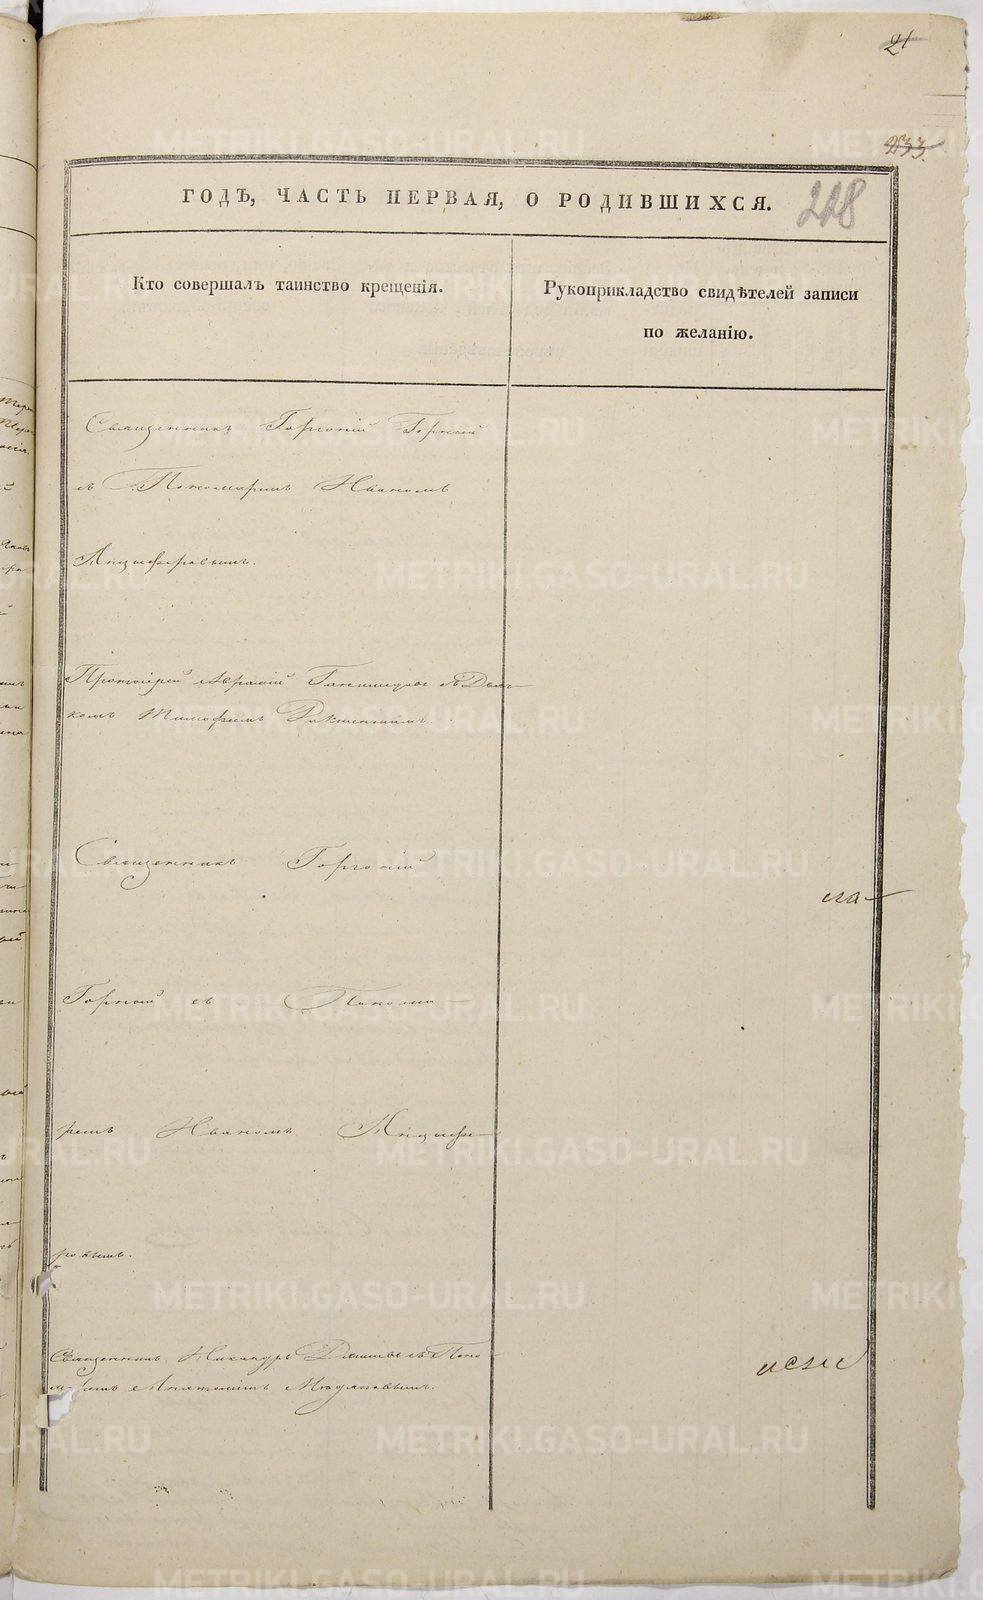 21
233
ГОДЪ, ЧАСТЬ ПЕРВАЯ, О РОДИВШИХСЯ. 228
Кто совершалъ таинство крещенія.
Рукоприкладство свидѣтелей записи
по желанію.
Священникъ Горгоній Горный
съ Пономаремъ Иваномъ
Анциферовымъ.
Протоіерей Аврамій съ Дьяч-
комъ Тимофеемъ
Священникъ Горгоній
Горный съ Понома-
ремъ Иваномъ Анцифе-
ровымъ.
Священникъ Никандръ съ Поно-
маремъ
METRIKI.GASO-URAL.RU